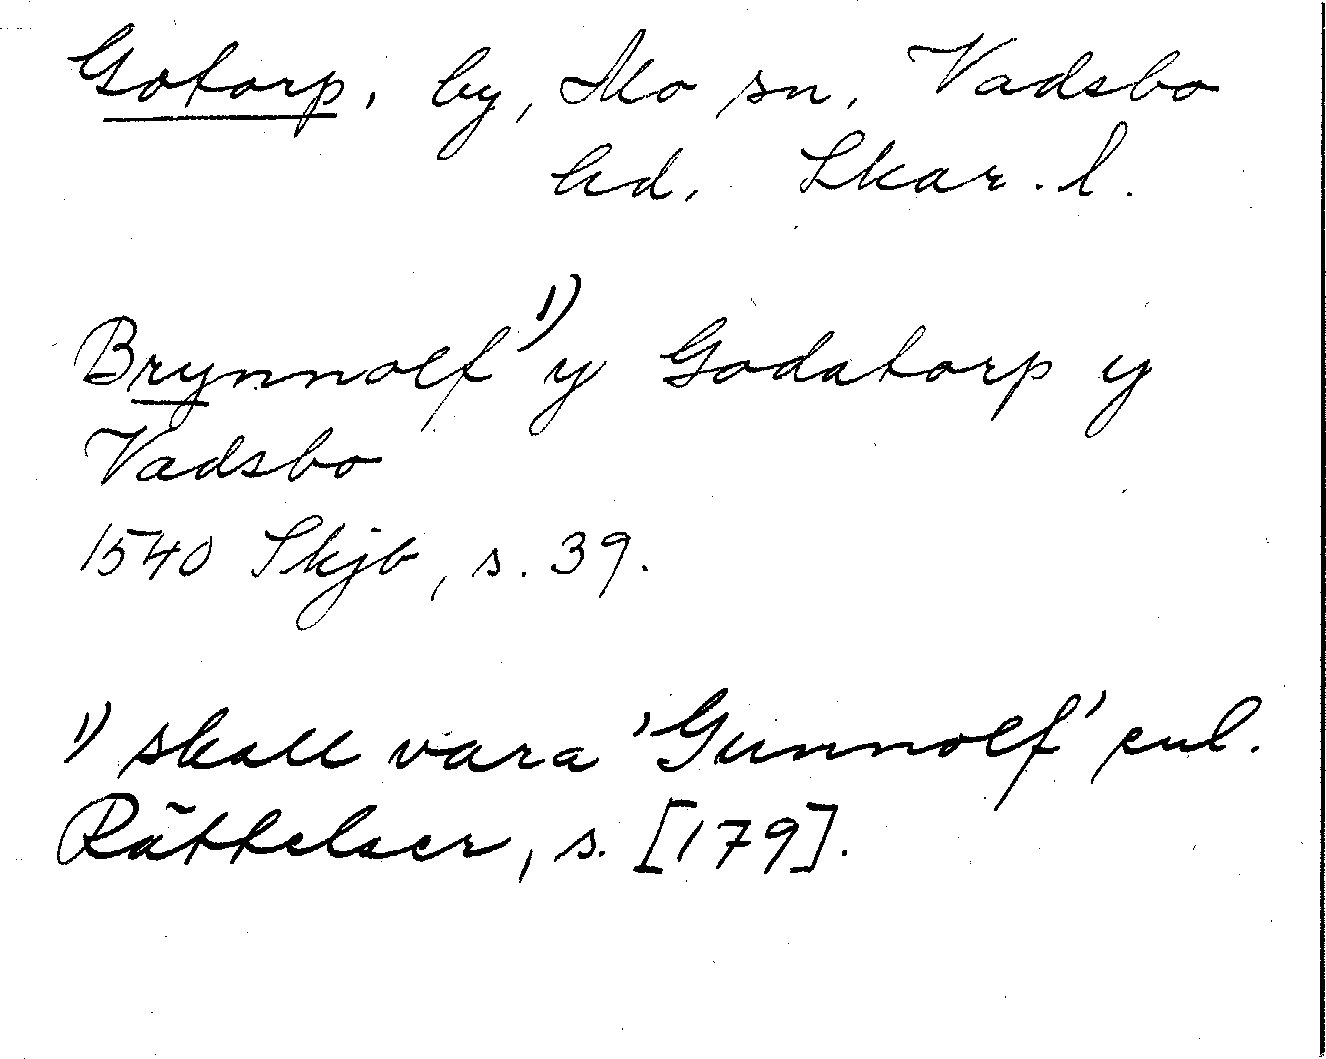 Gotorp, by, Mo sn, Vadsbo
hd, Skar. l.
Brynnolf ¹⁾ y Godatorp y
Vadsbo
1540 Skjb, s. 39.
¹⁾ skall vara 'Gunnolf' enl.
Rättelser, s. [179].